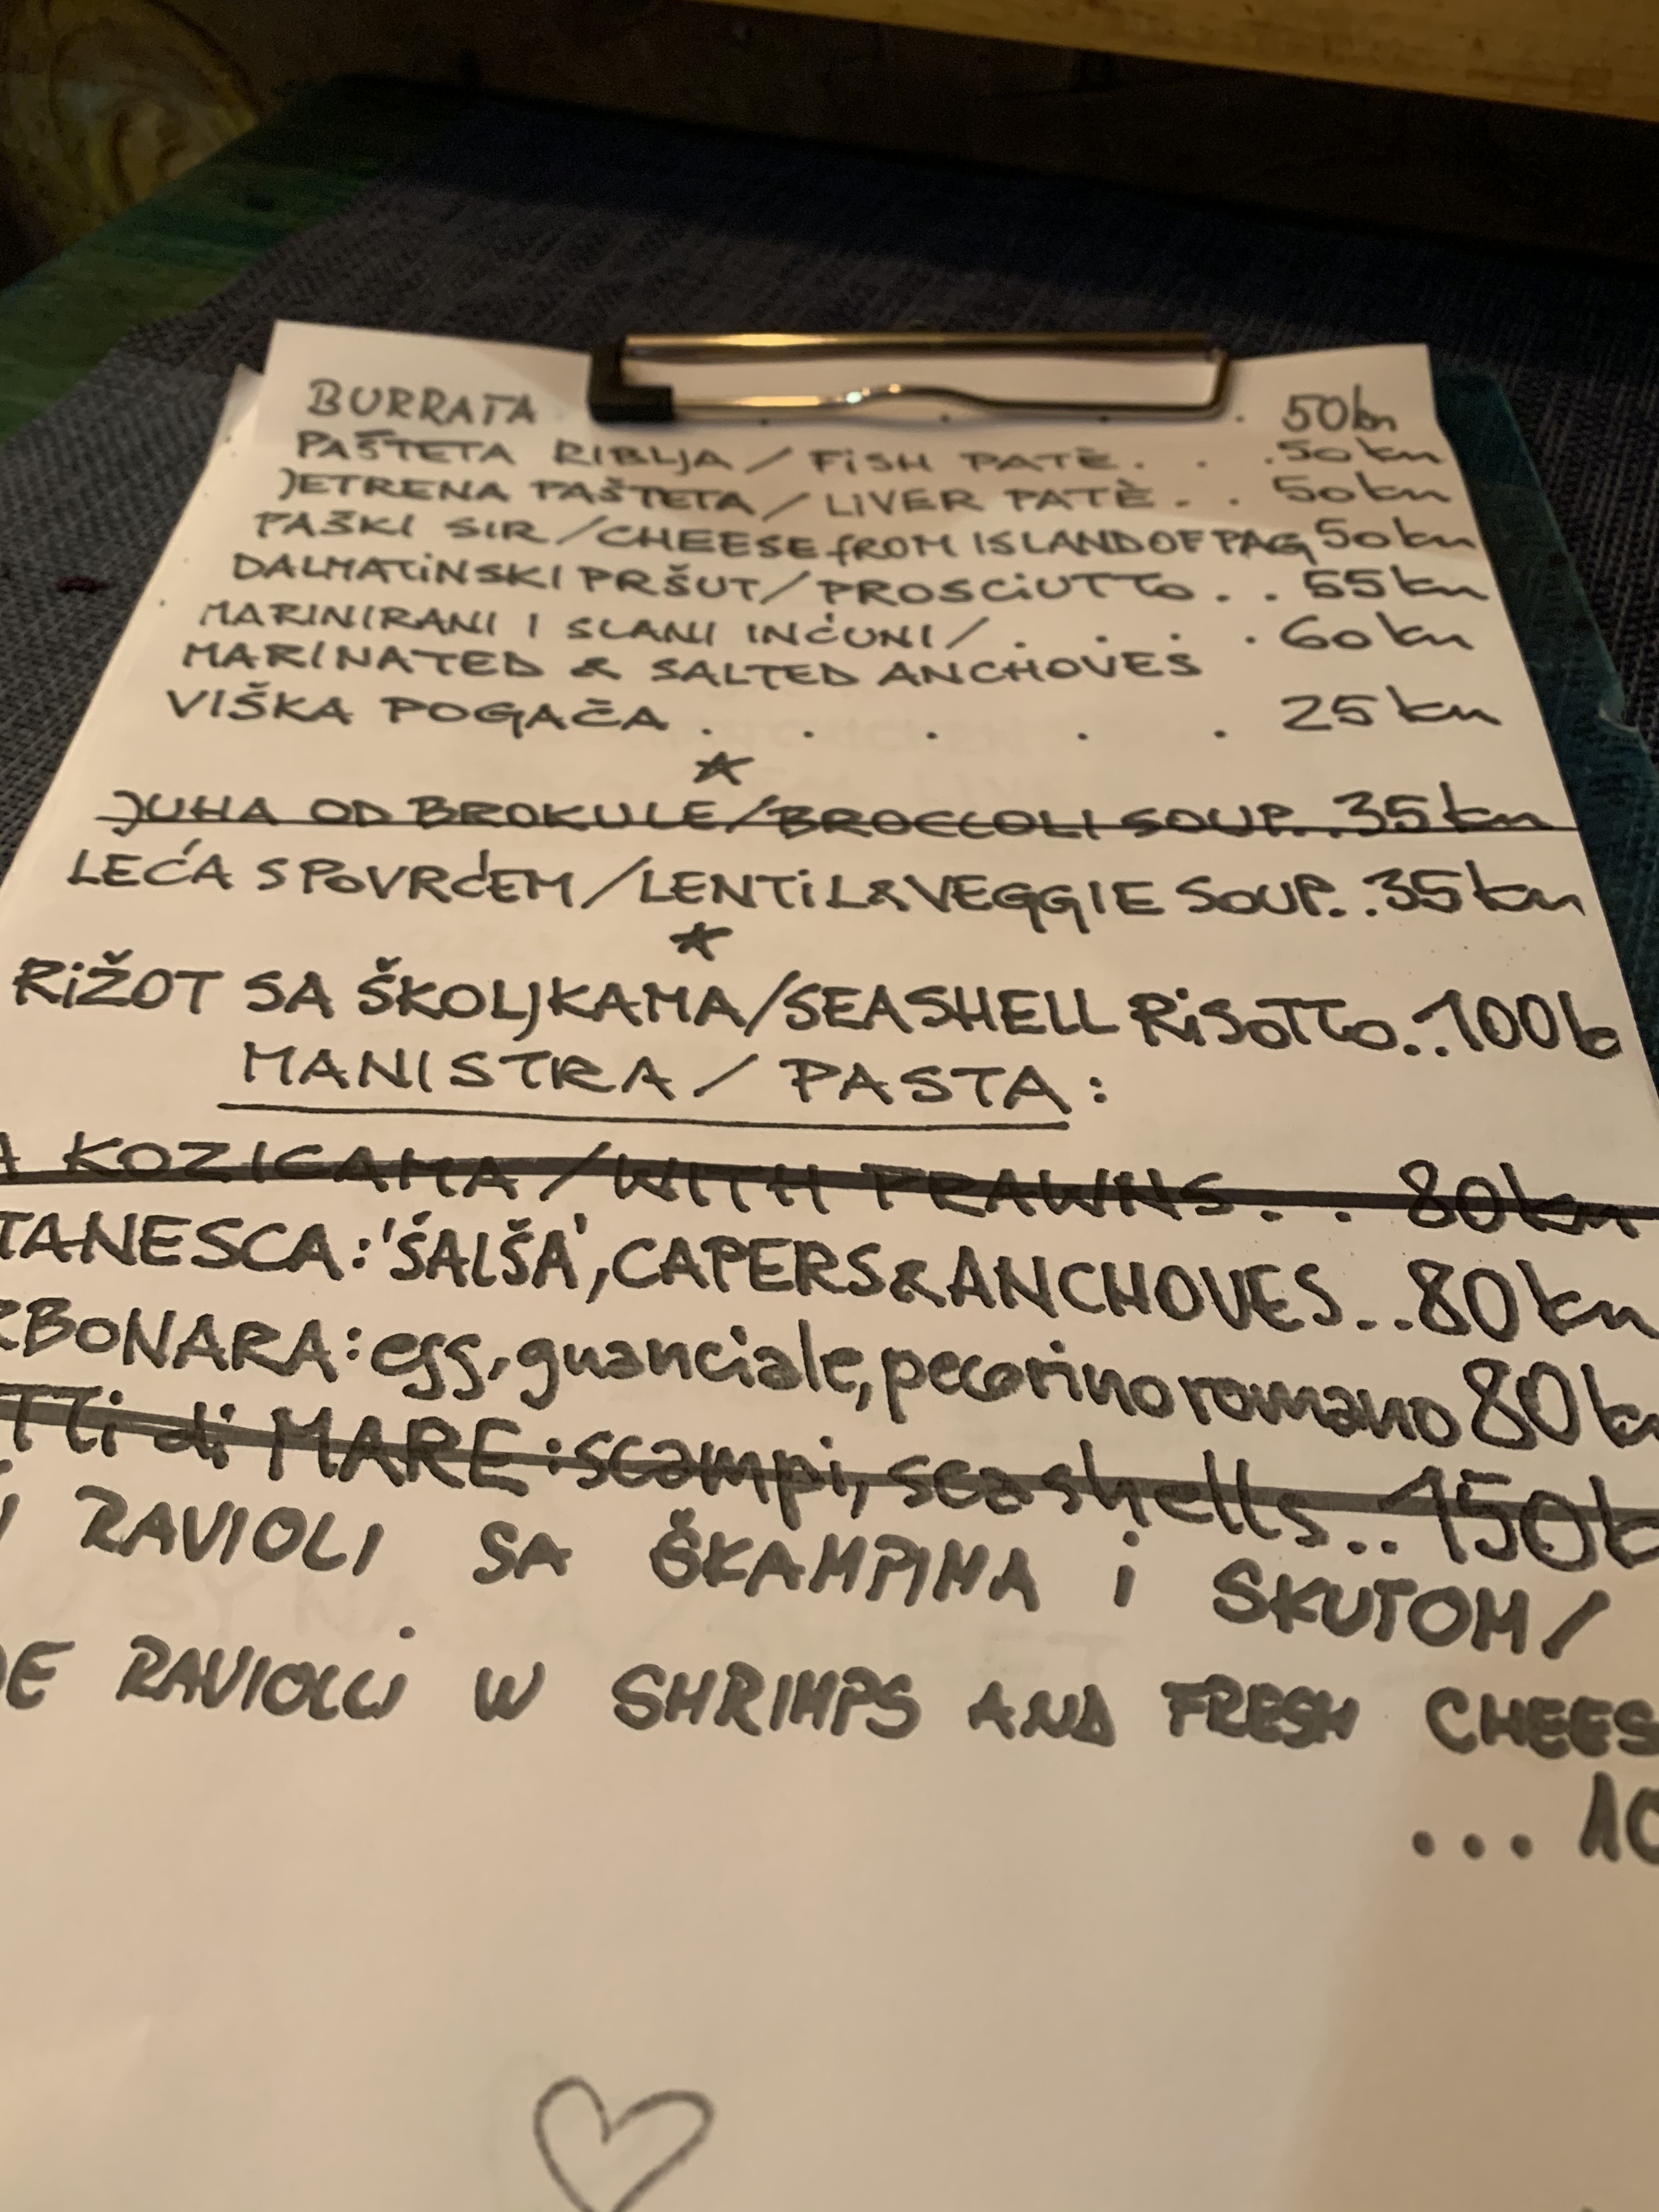 BURRATA . . . 50kn
PAŠTETA RIBLJA / FiSH PATÈ. . . 50kn
JETRENA PAŠTETA / LiVER PATÈ . . 50kn
PAŠKI SIR / CHEESE fROM ISLAND OF PAG 50kn
DALMATiNSKI PRŠUT / PROSCiUTTo . . 55kn
MARINIRANI I SLANI INĆUNI / . . . . 60kn
MARINATED & SALTED ANCHOVES
VIŠKA POGAČA . . . . . 25kn
JUHA OD BROKULE / BROCCOLI SOUP. . 35kn
LEĆA S POVRĆEM / LENTiL & VEGGIE SOUP. . . 35kn
RiŽOT SA ŠKOLJKAMA / SEASHELL RiSoTTo . . . 100k
MANISTRA / PASTA :
A KOZICAMA / WITH PRAWNS . . 80kn
TANESCA : 'ŠALŠA', CAPERS & ANCHOVES . . . 80kn
RBoNARA : egg, guanciale, pecorino romano 80kn
TTi di MARE : scampi, seashells . . . 150k
I RAVIOLI SA ŠKAMPIMA i SKUTOM /
DE RAVIOLLI W SHRIMPS AND FRESH CHEES
. . . 10